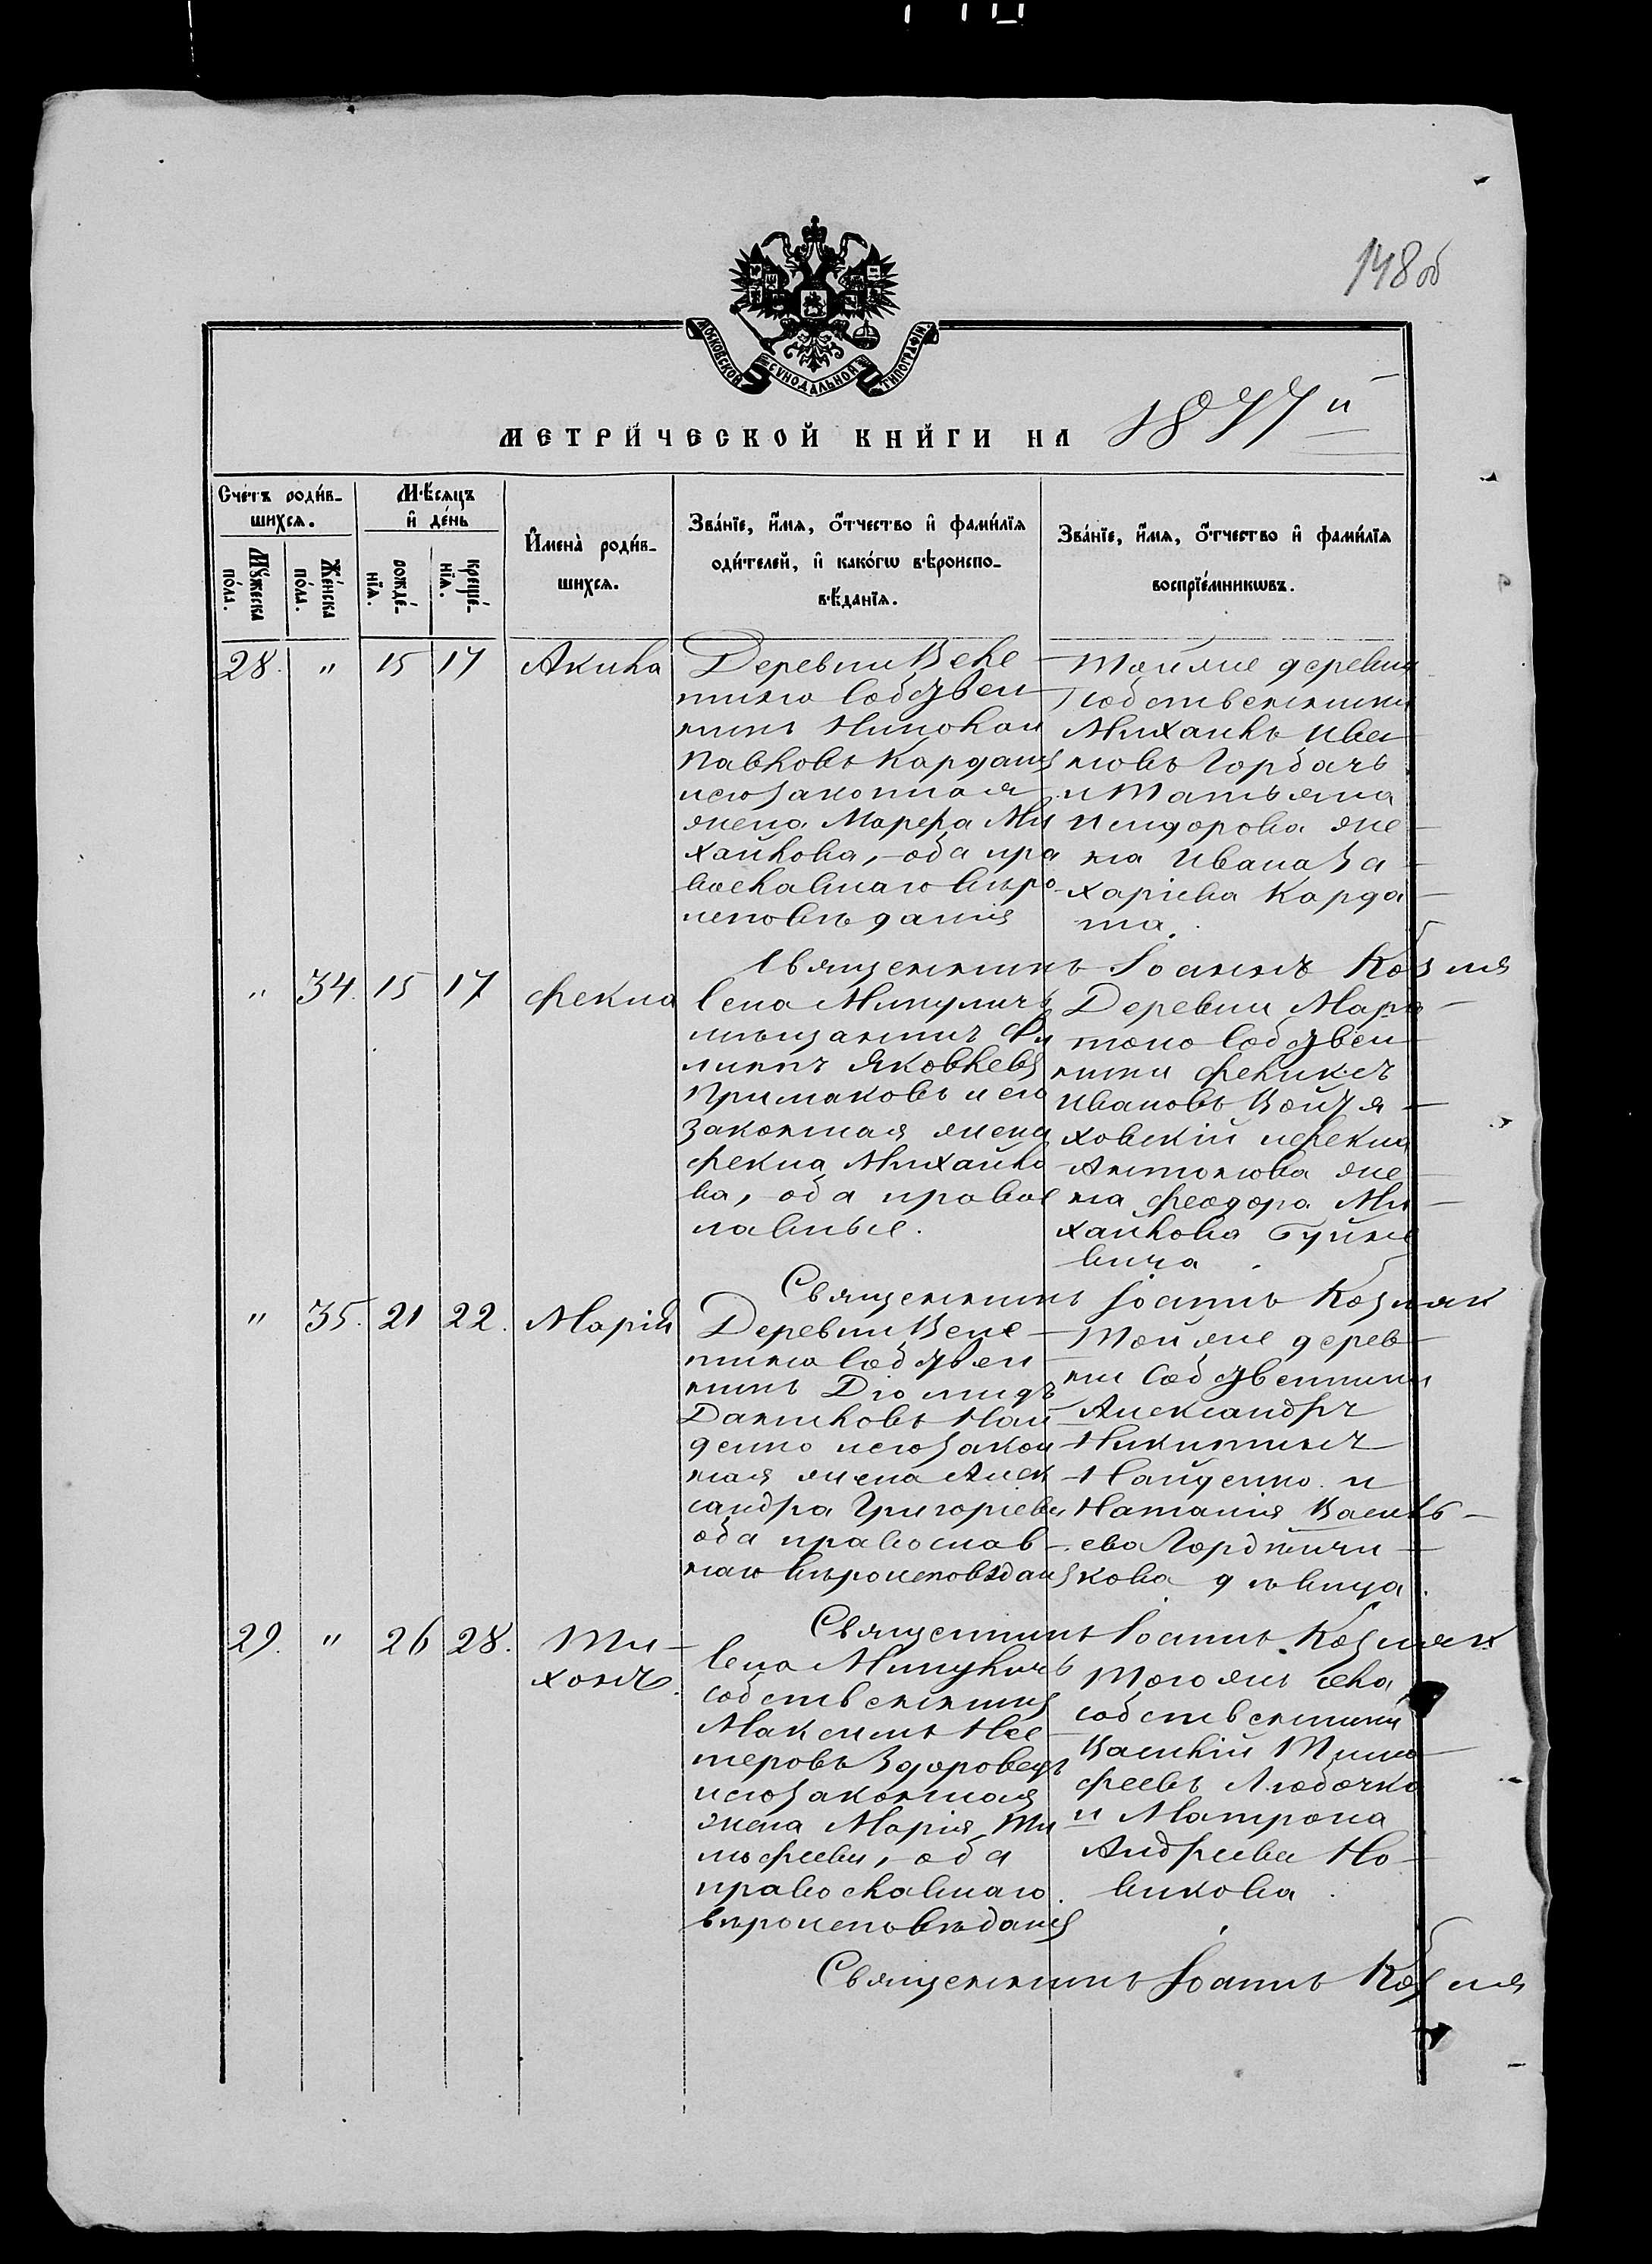 148 об
МОСКОВСКОЙ СѴНОДАЛЬНОЙ ТИПОГРАФІИ
МЕТРИ́ЧЕСКОЙ КНИ́ГИ НА 1877й
Сче́тъ роди́в-
шихсѧ.
Мꙋ́жеска
по́ла.
Же́нска
по́ла.
Мѣ́сѧцъ
и҆ де́нь
рожде́-
нїѧ.
креще́-
нїѧ.
И҆мена̀ роди́в-
шихсѧ.
Зва́нїе, и҆́мѧ, ѻ҆́тчество и҆ фами́лїѧ
оди́телей, и҆ како́гѡ вѣроиспо-
вѣ́данїѧ.
Зва́нїе, и҆́мѧ, ѻ҆́тчество и҆ фами́лїѧ
воспрїе́мникѡвъ.
28. " 15 17 Акила
Деревни Веле
тина Собствен
никъ Николай
Павловъ Кардашъ
и его законная
жена Марфа Ми
хайлова, - оба пра
вославнаго веро
исповѣданія
Той же деревни
собственники
Михаилъ Ива
новъ Горбачъ
и Татьяна
Исидорова же
на Ивана За
харіева Карда
ша.
Священникъ Іоаннъ Козля
" 34. 15 17 Фекла
Села Микуличъ
мѣщанинъ Фи
липпъ Яковлевъ
Примаковъ и его
законная жена
Фекла Михайло
ва, - оба правос
лавные.
Деревни Март
собствен
ники Феликсъ
Ивановъ Войця
ховскій и Фекла
Антонова же
на Феодора Ми
хайлова Буйне
вича.
Священникъ Іоаннъ Козляк
" 35. 21 22. Марія
Деревни Веле
тина Собствен
никъ Діомидъ
Даниловъ Най
денко и его закон
ная жена Алек
сандра Григоріева
оба православ
наго вѣроисповѣданія
Той же дерев
ни Собственники
Александръ
Никитинъ
Найденко и
Наталія Василь
ева
кова дѣвица.
Священникъ Іоаннъ Козляк
29. " 26 28. Ти-
хонъ.
Села Микуличъ
собственникъ
Максимъ Нес
теровъ Здоровецъ
и его законная
жена Марія Ти
мофеева, - оба
православнаго
вѣроисповѣданія
Того же села
собственники
Василій Тимо
феевъ Любочко
и Матрона
Андреева Но
викова.
Священникъ Іоаннъ Козля